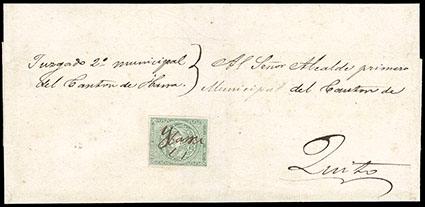 Juzgado 2º municipal
del Canton de Ibarra.
Al Señor Alcalde primero
Municipal del Canton de
Quito